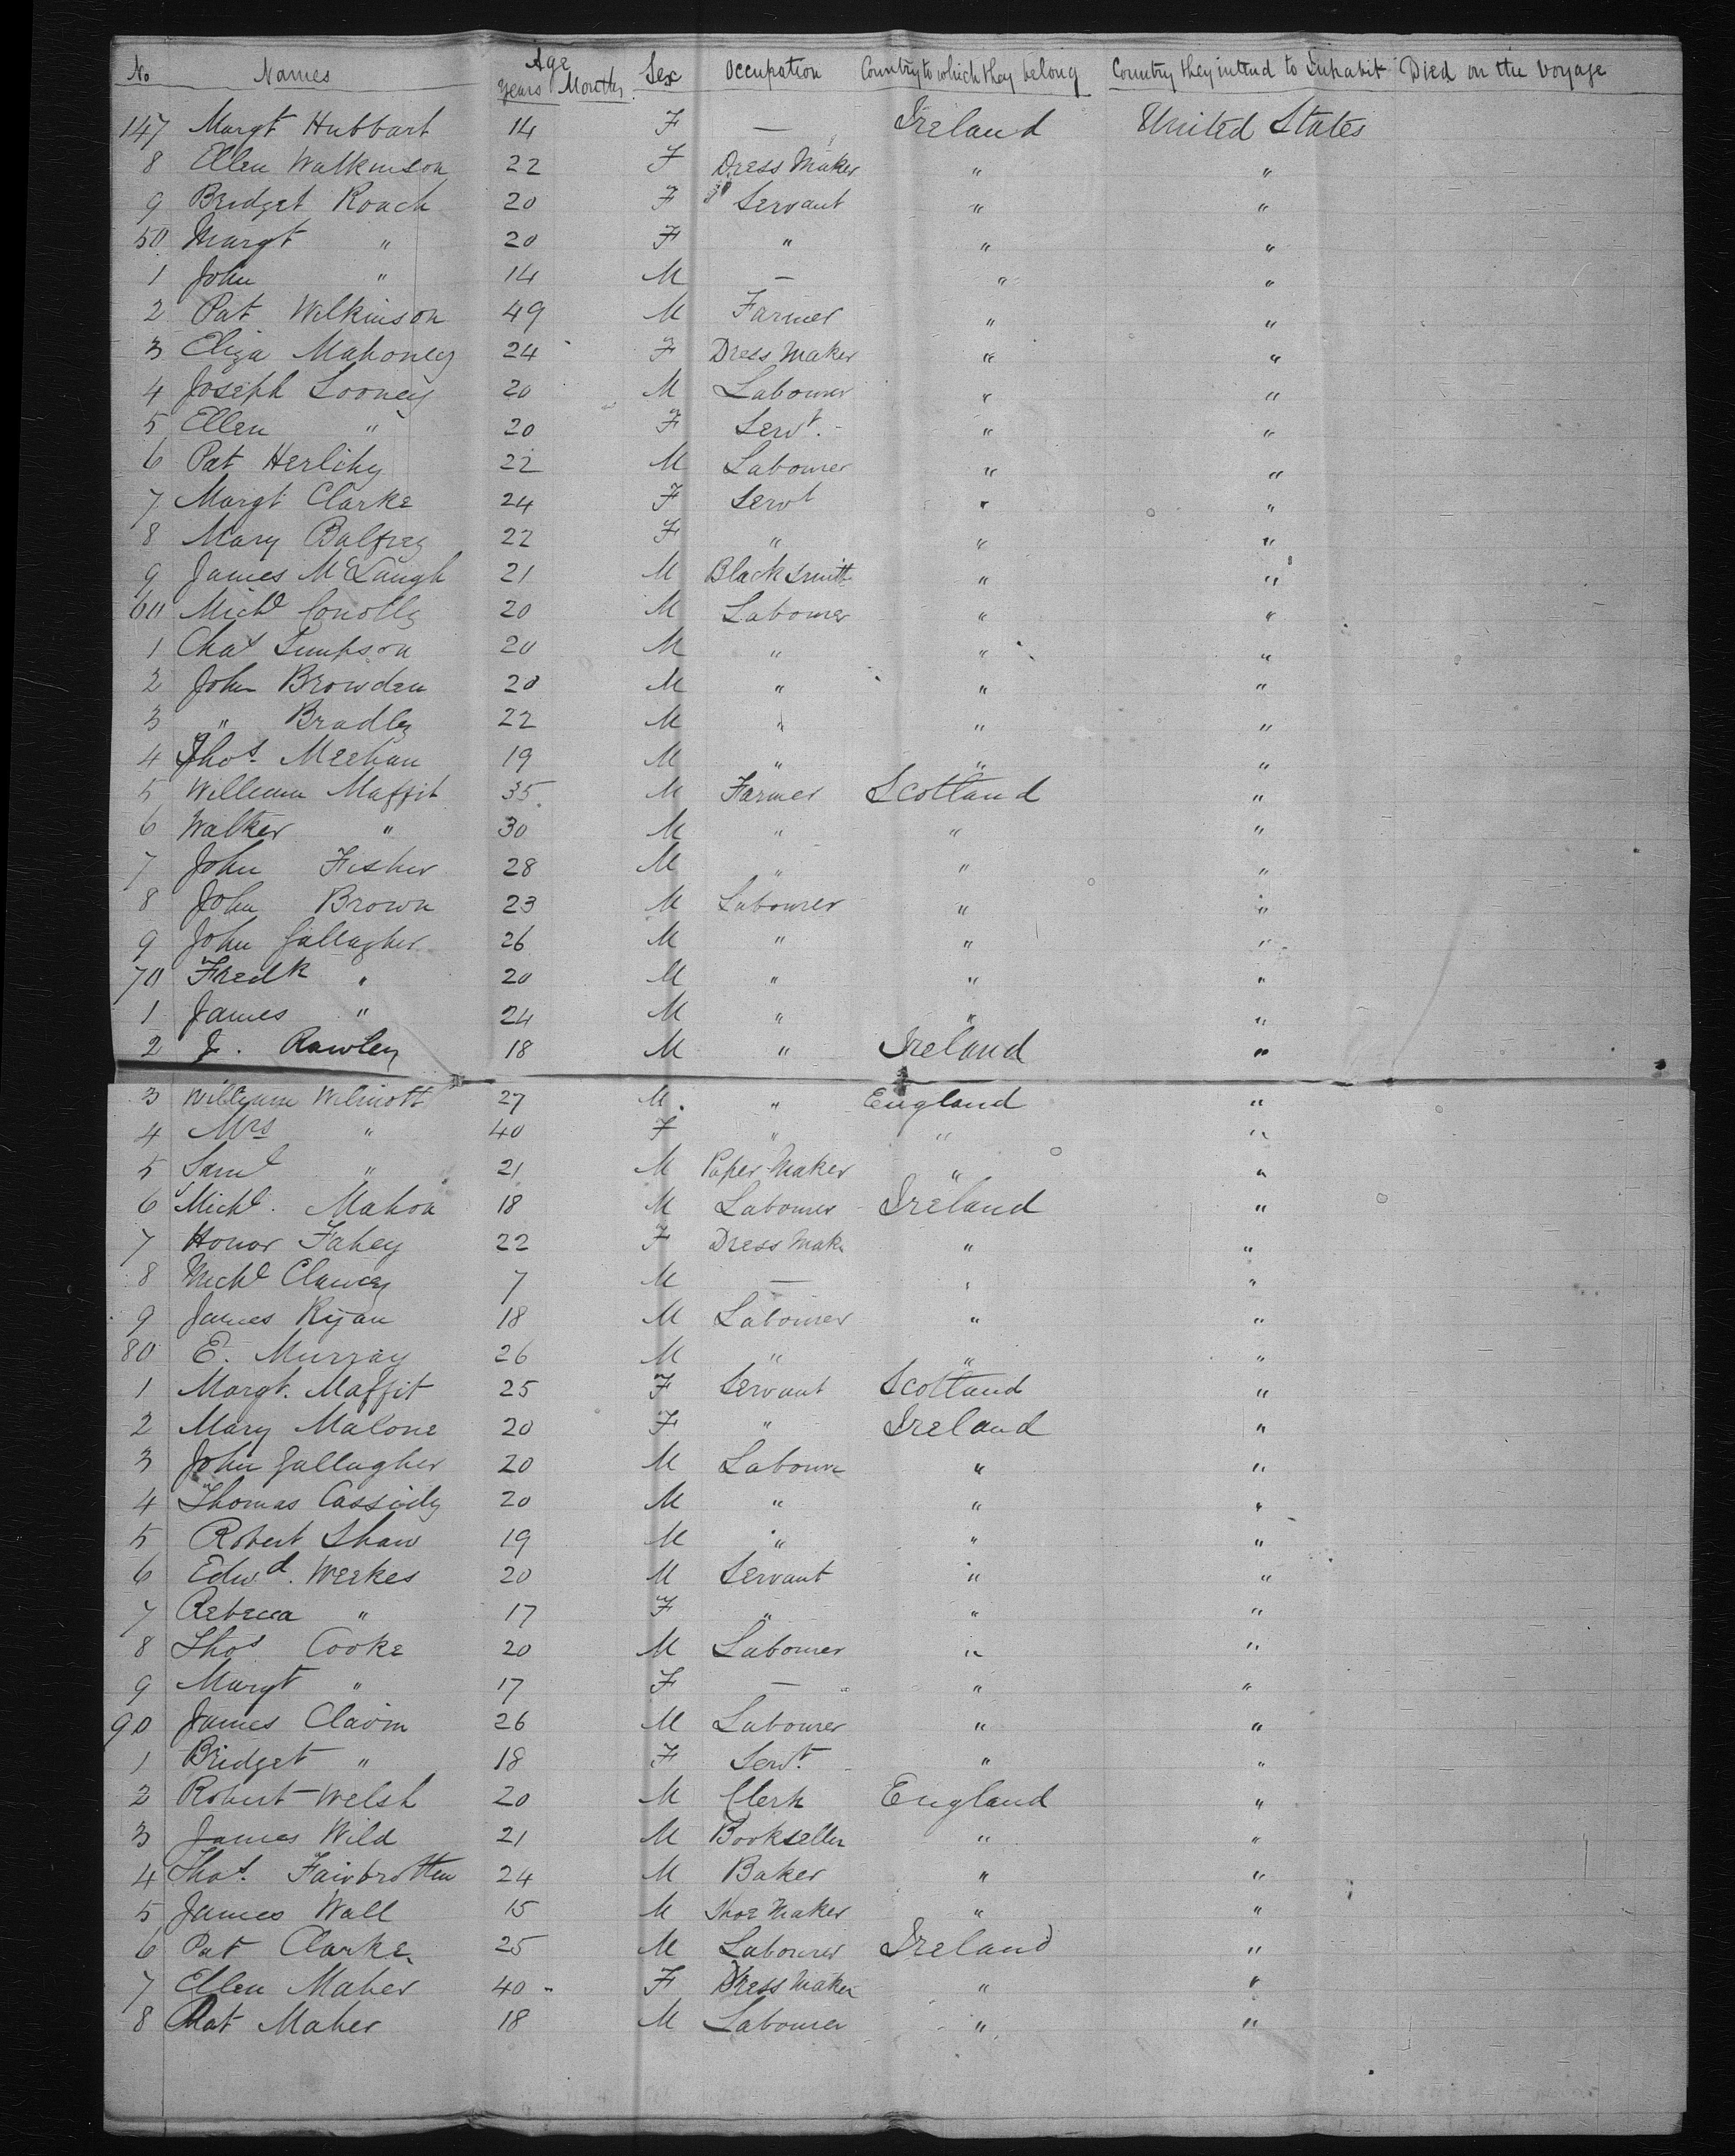 No Names Age Years Months Sex Occupation Country to which they belong Country they intend to Inhabit Died on the Voyage
147 Margt Hubbart 14 F — Ireland United States
8 Ellen Walkinson 22 F Dress Maker " "
9 Bridget Roach 20 F Servant " "
50 Margt " 20 F " " "
1 John " 14 M — " "
2 Pat Wilkinson 49 M Farmer " "
3 Eliza Mahoney 24 F Dress Maker " "
4 Joseph Looney 20 M Labourer " "
5 Ellen " 20 F Servt. " "
6 Pat Herlihy 22 M Labourer " "
7 Margt Clarke 24 F Servt " "
8 Mary Balfrey 22 F " " "
9 James McLaugh 21 M Black Smith " "
60 Michl Conolly 20 M Labourer " "
1 Chas Simpson 20 M " " "
2 John Browden 20 M " " "
3 " Bradley 22 M " " "
4 Thos. Meehan 19 M " " "
5 William Maffit 35 M Farmer Scotland "
6 Walker " 30 M " " "
7 John Fisher 28 M " " "
8 John Brown 23 M Labourer " "
9 John Gallagher 26 M " " "
70 Fredk " 20 M " " "
1 James " 24 M " " "
2 J. Rawley 18 M " Ireland "
3 William Wilmott 27 M " England "
4 Mrs " 40 F " " "
5 Saml " 21 M Paper Maker " "
6 Michl. Mahon 18 M Labourer Ireland "
7 Honor Fahey 22 F Dress Mak. " "
8 Michl Clancy 7 M — " "
9 James Ryan 18 M Labourer " "
80 E. Murray 26 M " " "
1 Margt. Maffit 25 F Servant Scotland "
2 Mary Malone 20 F " Ireland "
3 John Gallagher 20 M Labourer " "
4 Thomas Cassidy 20 M " " "
5 Robert Shaw 19 M " " "
6 Edwd. Weekes 20 M Servant " "
7 Rebecca " 17 F " " "
8 Thos Cooke 20 M Labourer " "
9 Margt " 17 F — " "
90 James Clavin 26 M Labourer " "
1 Bridget " 18 F Servt. " "
2 Robert Welsh 20 M Clerk England "
3 James Wild 21 M Bookseller " "
4 Thos. Fairbrother 24 M Baker " "
5 James Wall 15 M Shoe Maker " "
6 Pat Clarke 25 M Labourer Ireland "
7 Ellen Maher 40 F Dress Maker " "
8 Pat Maher 18 M Labourer " "